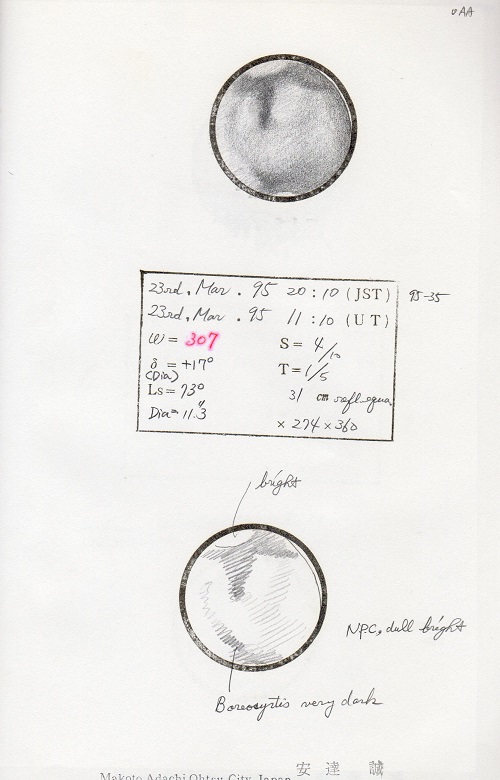 23rd, Mar. 95 20:10 (JST) 95-35
23rd, Mar. 95 11:10 (UT)
ω= 307 S= 4/10
δ = +17° T= 1/5
(Dia)
Ls= 73° 31 cm refl. equa
Dia= 11.″3 × 274 × 360
bright
N.P.C, dull bright
Boreosyrtis very dark
Makoto Adachi Ohtsu City, Japan 安達 誠